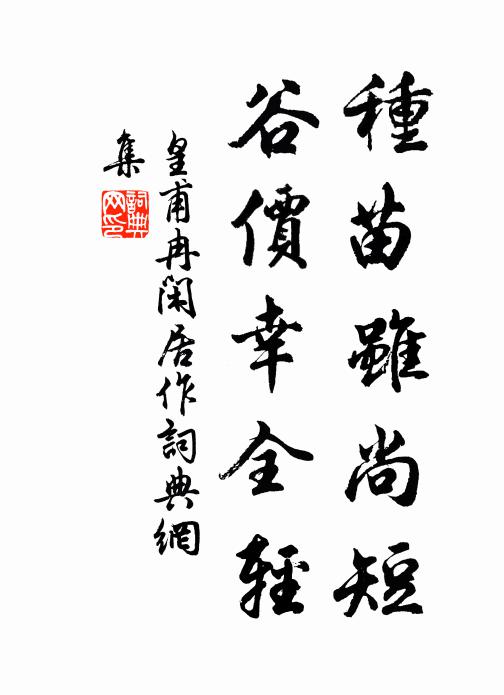 種苗雖尚短
谷價幸全輕
皇甫冉閑居作詞典網
集
詞典
网印